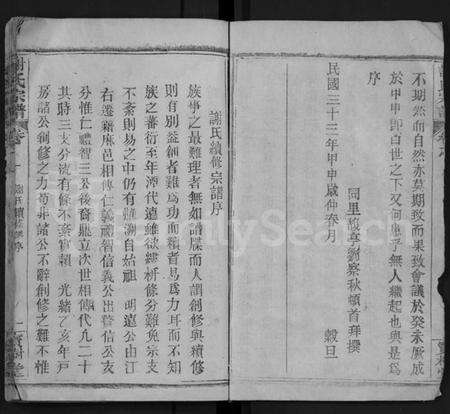 不期然而自然亦莫期致而果致會議於癸未厥成
於甲申即百世之下又何患乎無人繼起也與是爲
序
民國三十三年甲申歲仲春月 穀旦
同里 劉察秋頓首拜撰
謝氏續修宗譜序
族事之最難理者無如譜牒而人謂創修與續修
則有別益創者難爲功而續者易爲力耳而不知
族之蕃衍至年湮代遠雖欲縷析條分難免宗支
不紊則易之中仍有難 自始祖 明遠公由江
右遷 麻邑相傳仁義禮智信義公出 信公支
分惟仁禮智三公後裔 立次世相傳代九二十
其時三支分派有條不紊 賴 光緒乙亥年戸
房諸公創修之力苟非諸公不辭創修之難不惟
謝氏宗譜 卷
謝氏續修序
FamilySearch